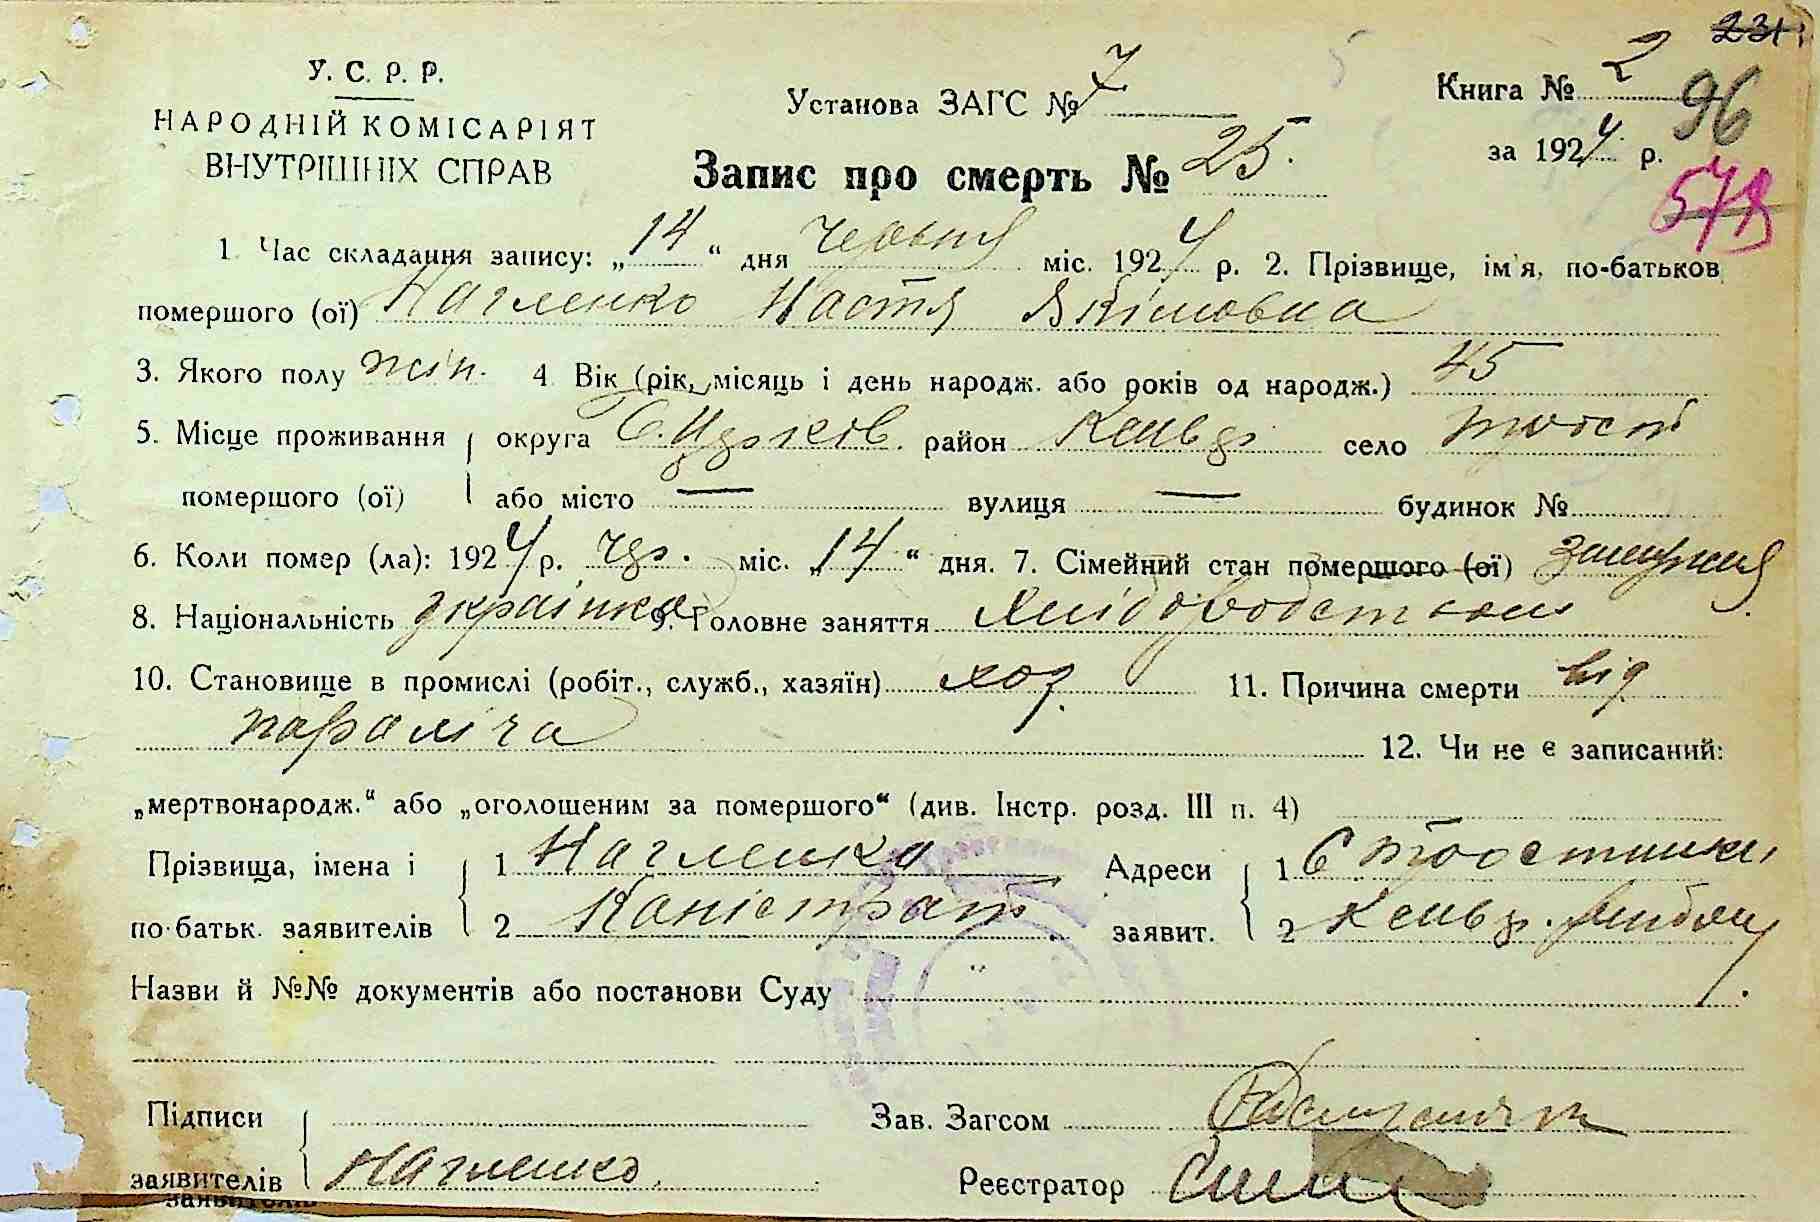 231
У. С. Р. Р.
НАРОДНІЙ КОМІСАРІЯТ
ВНУТРІШНІХ СПРАВ
Установа ЗАГС № 7
Книга № 2
96
за 1924 р.
Запис про смерть № 25.
1. Час складання запису: „14“ дня червня міс. 1924 р. 2. Прізвище, ім'я, по-батьков
помершого (ої) Нагленко Настя Якімовна
3. Якого полу жін. 4 Вік (рік, місяць і день народж. або років од народж.) 45
5. Місце проживання округа Б. Церков. район село
помершого (ої) або місто — вулиця — будинок №
6. Коли помер (ла): 1924 р. чер. міс. „14“ дня. 7. Сімейний стан помершого (ої) замужня
8. Національність українка 9. Головне заняття хлібороводством
10. Становище в промислі (робіт., служб., хазяїн) хоз. 11. Причина смерти від
параліча 12. Чи не є записаний:
„мертвонародж.“ або „оголошеним за помершого“ (див. Інстр. розд. III п. 4)
Прізвища, імена і 1 Нагленко Адреси 1 С
по-батьк. заявителів 2 Каністрат заявит. 2
Назви й №№ документів або постанови Суду
Підписи Зав. Загсом
заявителів Нагленко. Реєстратор
заявителів